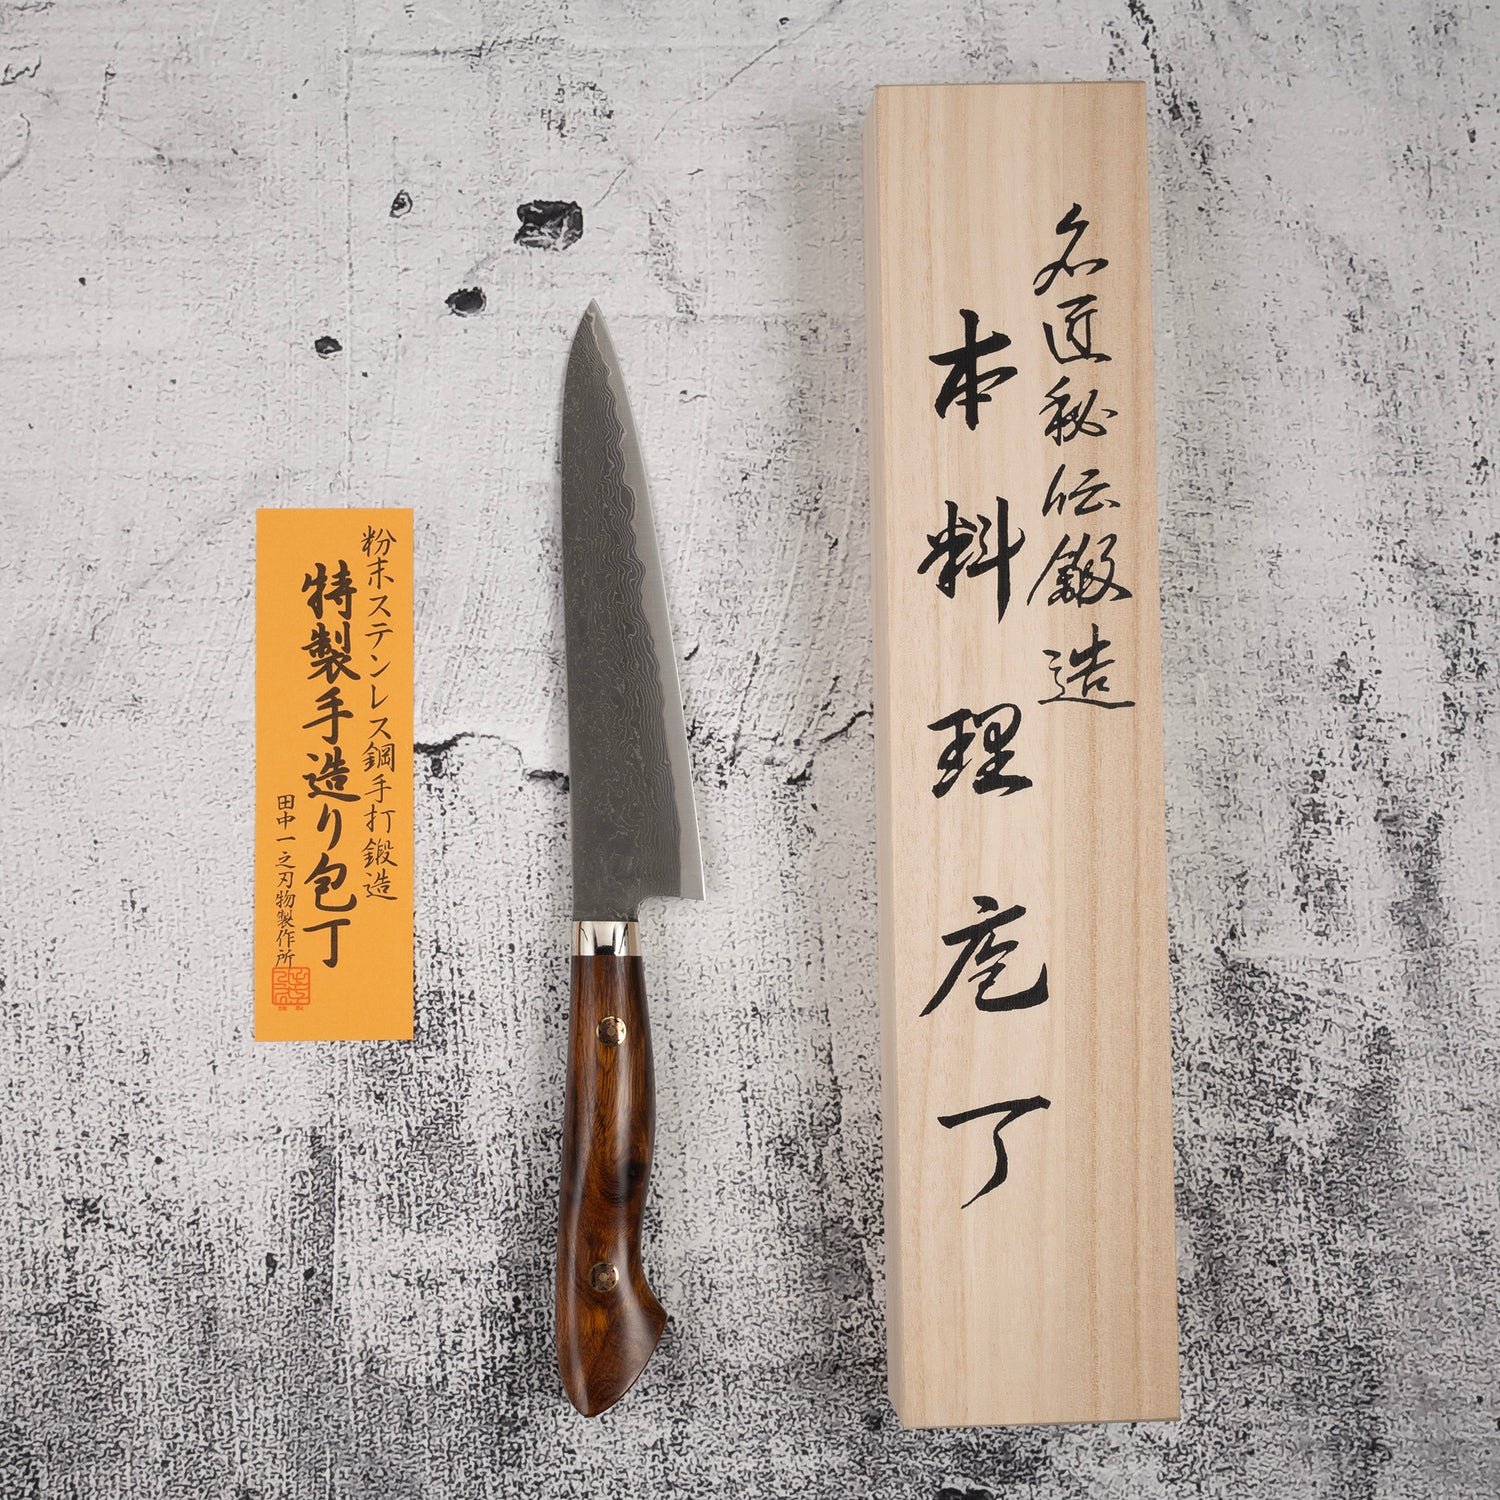 粉末ステンレス鋼手打鍛造
特製手造り包丁
田中一之刃物製作所
名匠秘伝鍛造
本料理庖丁